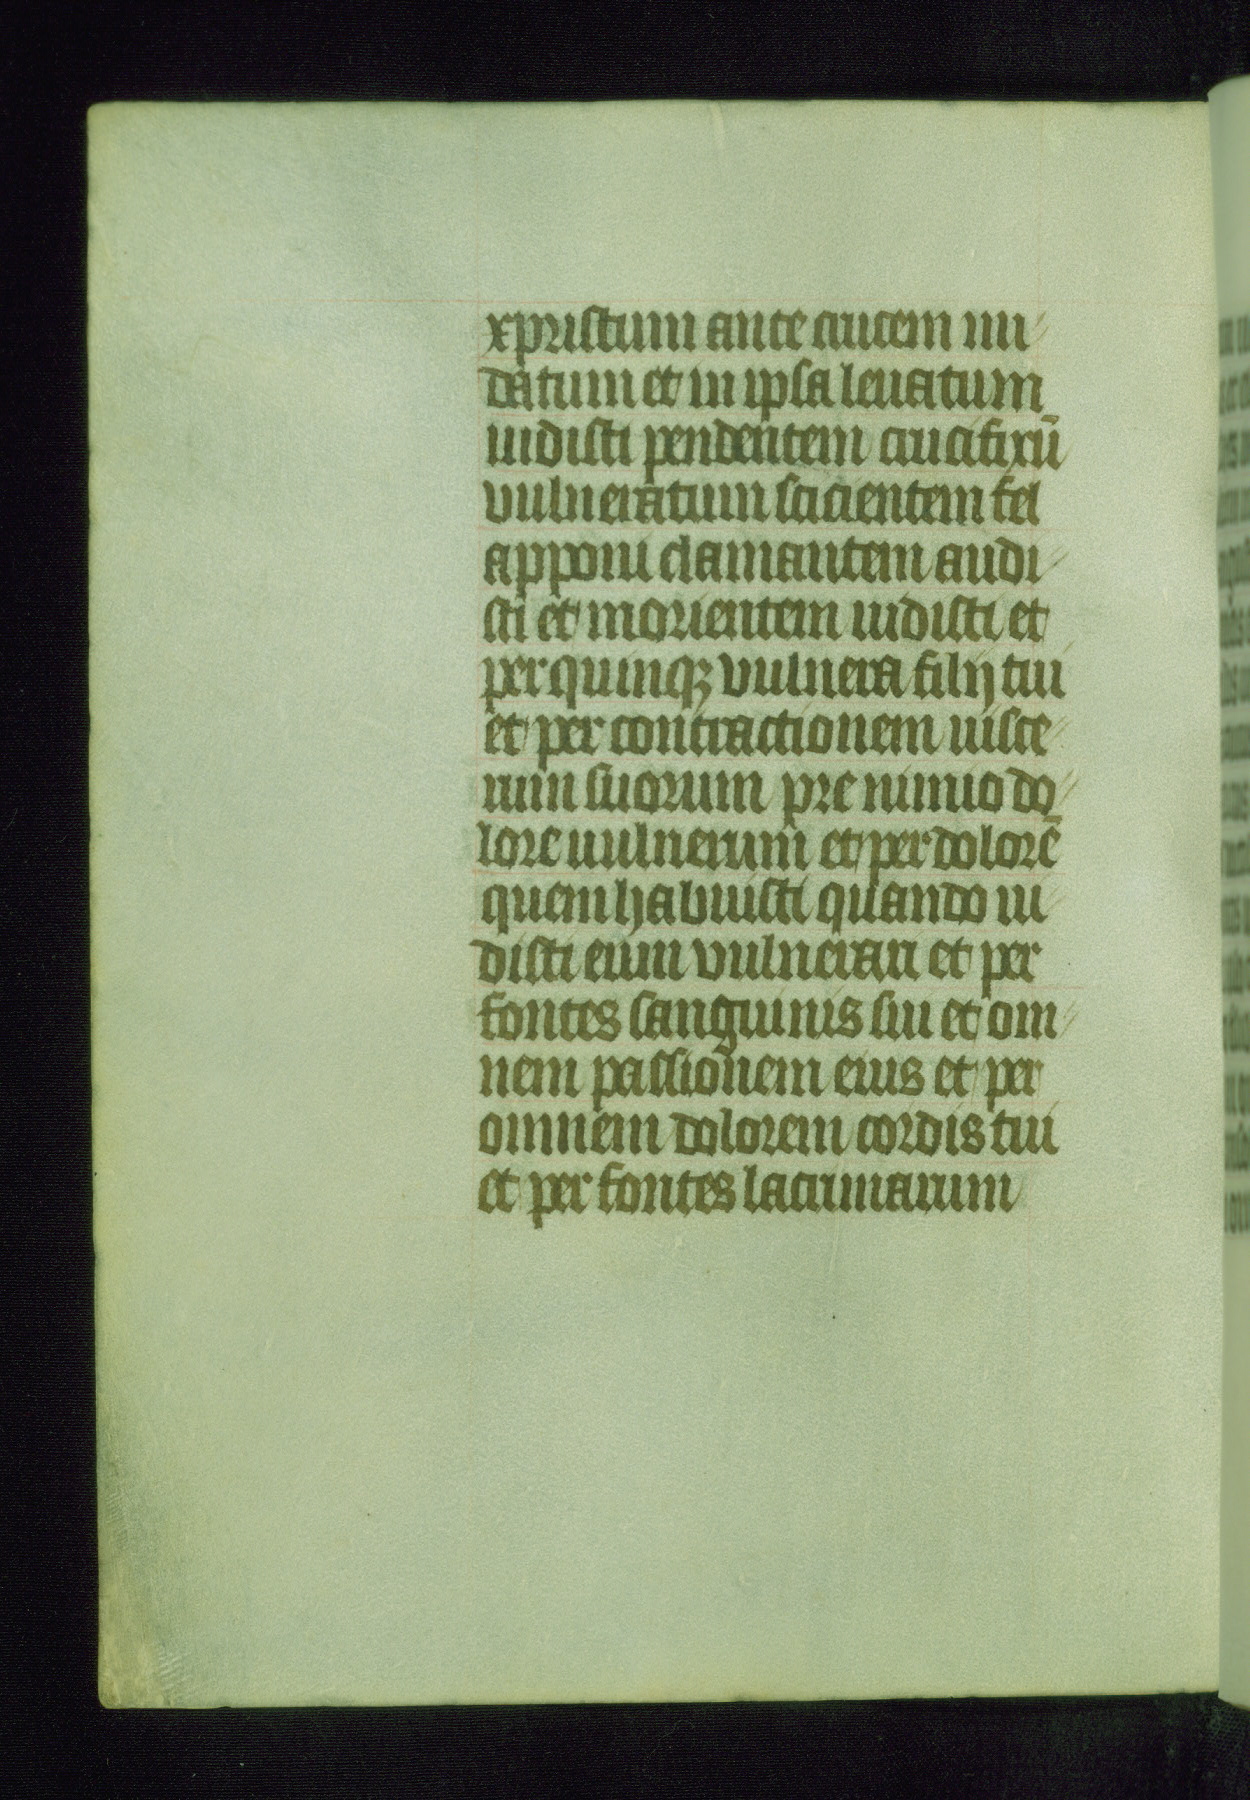 xpristum ante crucem nu
datum et in ipsa leuatum
uidisti pendentem crucifixū
vulneratum sticientem fel
apponi clamantem audi
sti et morientem uidisti et
per quinqꝫ vulnera filij tui
et per contractionem uisce
rum suorum pre nimio do
lore uulnerum et per dolorē
quem habuisti quando ui
disti eum vulnerari et per
fontes sanguinis sui et om
nem passionem eius et per
omnem dolorem cordis tui
et per fontes lacrimarum